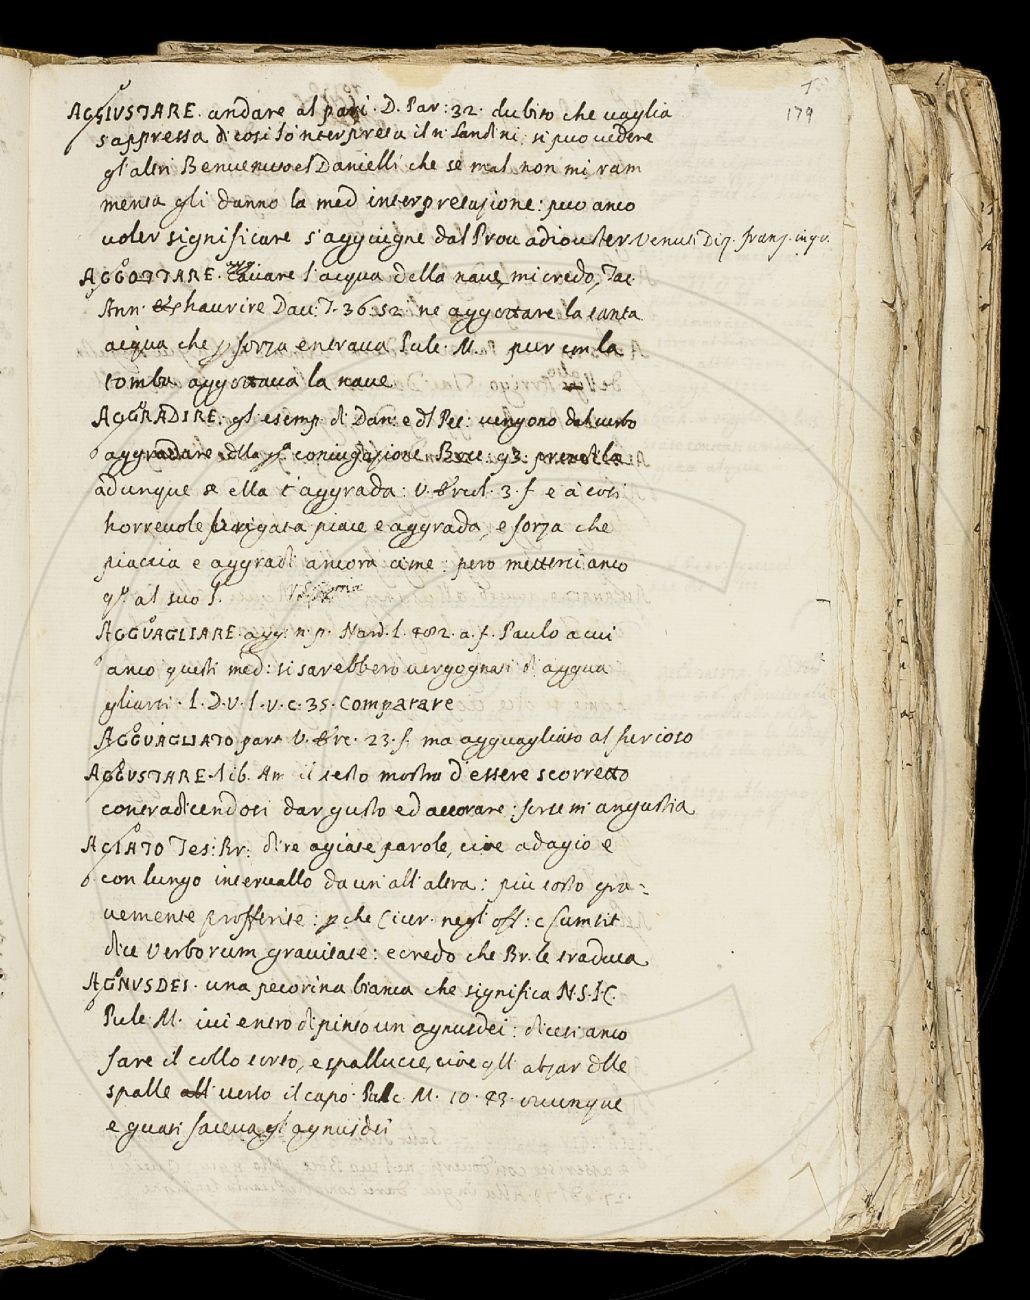 7
179
AGGIUSTARE. andare al pari. D. Par: 32. dubito che uaglia
s'appressa di cosi lo'nterpreta il n. Landini, si puo uedere
gl'altri Benuenuto el Danielli che se mal non mi ram
menta gli danno la med interpretazione: puo anco
uoler significare s'aggiugne dal Prou adiouster Venuti Diz. franz. ingr.
AGGOTTARE. cauare l'acqua della naue, mi credo, Tac.
Ann. exhaurire Dau: T. 36. 52. ne aggottare la tanta
acqua che p forza entraua Pulc. M. pur con la
tomba aggottaua la naue
AGGRADIRE. gl'esemp. di Dan: e dl Pet: uengono dal uerbo
aggradare della pa coniugazione Bocc: 93. prendila
adunque se ella t'aggrada: V. Ercol. 3. f e a cosi
horreuole brigata piace e aggrada, e forza che
piaccia e aggradi ancora a me: pero metterci anco
qo al suo l.
AGGUAGLIARE. agg. n. p. Nard. l. 482. a. f. Paulo a cui
anco questi med: si sarebbero uergognati di aggua
gliarsi. l. D. V. l. v. c. 35. comparare
AGGUAGLIATO part V. Erc. 23. f. ma agguagliato al furioso
AGGUSTARE. lib. Am il testo mostra d'essere scorretto
contradicendosi dar gusto ed accorare: forse in angustia
AGIATO Tes: Br: dire agiate parole, cioe adagio e
con lungo interuallo da un'all'altra: piu tosto gra-
uemente profferite: p che Cicer. negl'off: c sumtit
dice Verborum grauitate: e credo che Br. le traduca
AGNUSDEI. una pecorina bianca che significa N.S.I.C.
Pulc. M. iui entro dipinto un agnusdei: dicesi anco
fare il collo torto, e spallucce, cioe qll'alzar delle
spalle all uerso il capo. Pulc. M. 10. 83. ouunque
e guati faceua gl'agnusdei